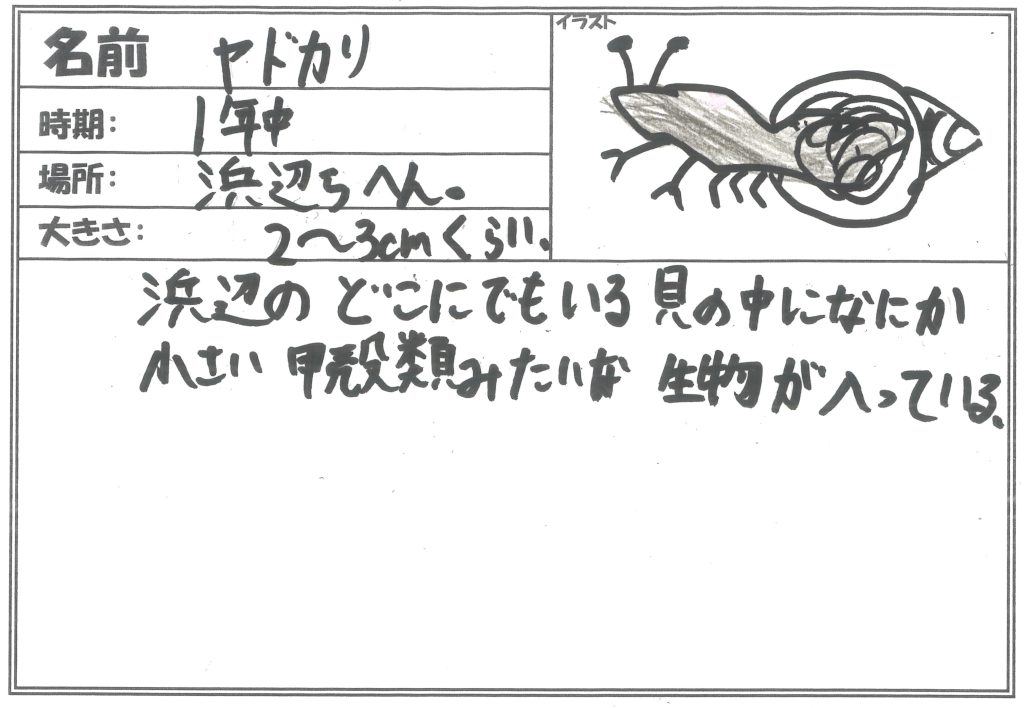 名前 ヤドカリ
イラスト
時期: 1年中
場所: 浜辺ちへん。
大きさ: 2〜3cmくらい。
浜辺のどこにでもいる貝の中になにか
小さい甲殻類みたいな生物が入っている。